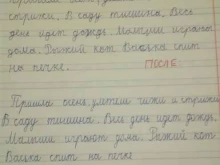 стрижи. В саду тишина. Весь
день идет дождь. Малыши играют
дома. Рыжий кот Васька спит
на печке.
ПОСЛЕ
Пришла осень, улетели чижи и стрижи.
В саду тишина. Весь день идет дождь.
Малыши играют дома. Рыжий кот
Васька спит на печке